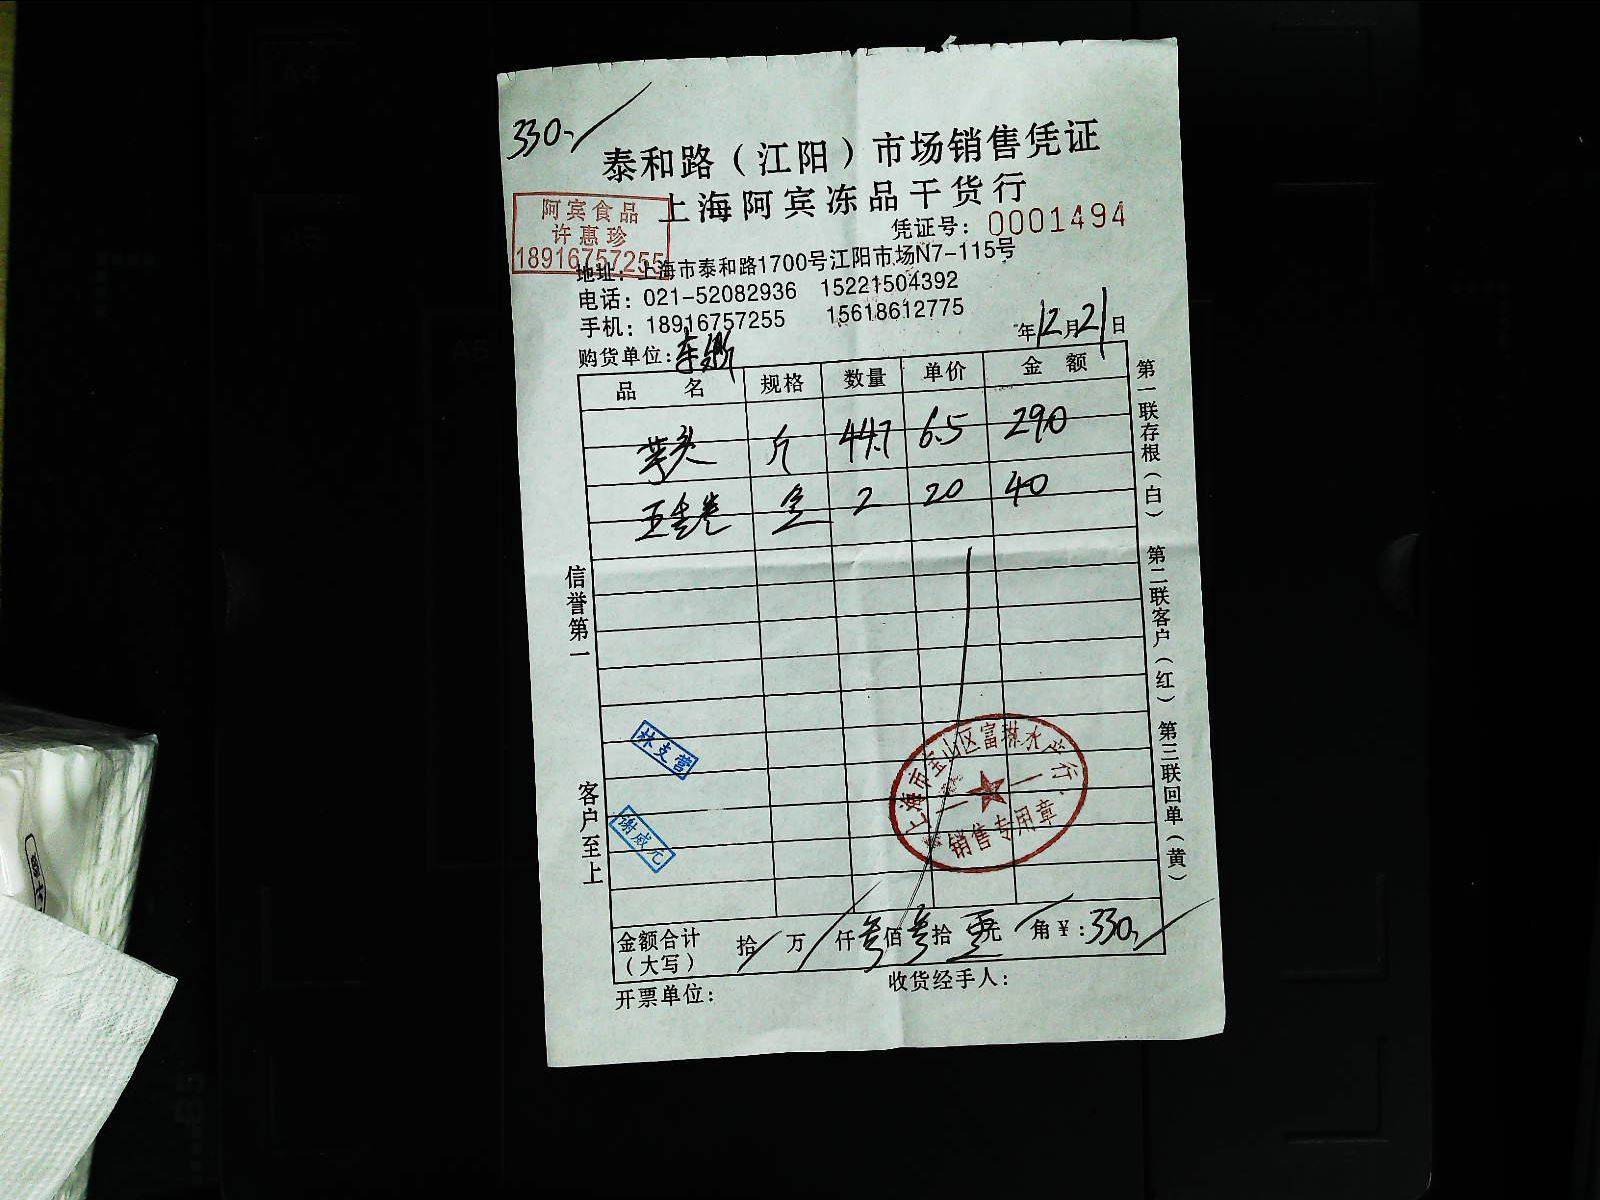 330,
泰和路（江阳）市场销售凭证
上海阿宾冻品干货行
阿宾食品
许惠珍
18916757255
凭证号：0001494
地址：上海市泰和路1700号江阳市场N7-115号
电话：021-52082936 15221504392
手机：18916757255 15618612775
年12月21日
购货单位：
品名 规格 数量 单价 金额
芋头 斤 44.7 6.5 290
五香卷 包 2 20 40
第一联存根（白） 第二联客户（红） 第三联回单（黄）
信誉第一
客户至上
林支营
谢威元
上海市宝山区富琪水产行
销售专用章
金额合计（大写） 拾 万 仟叁佰叁拾零元 角￥：330,
开票单位： 收货经手人：